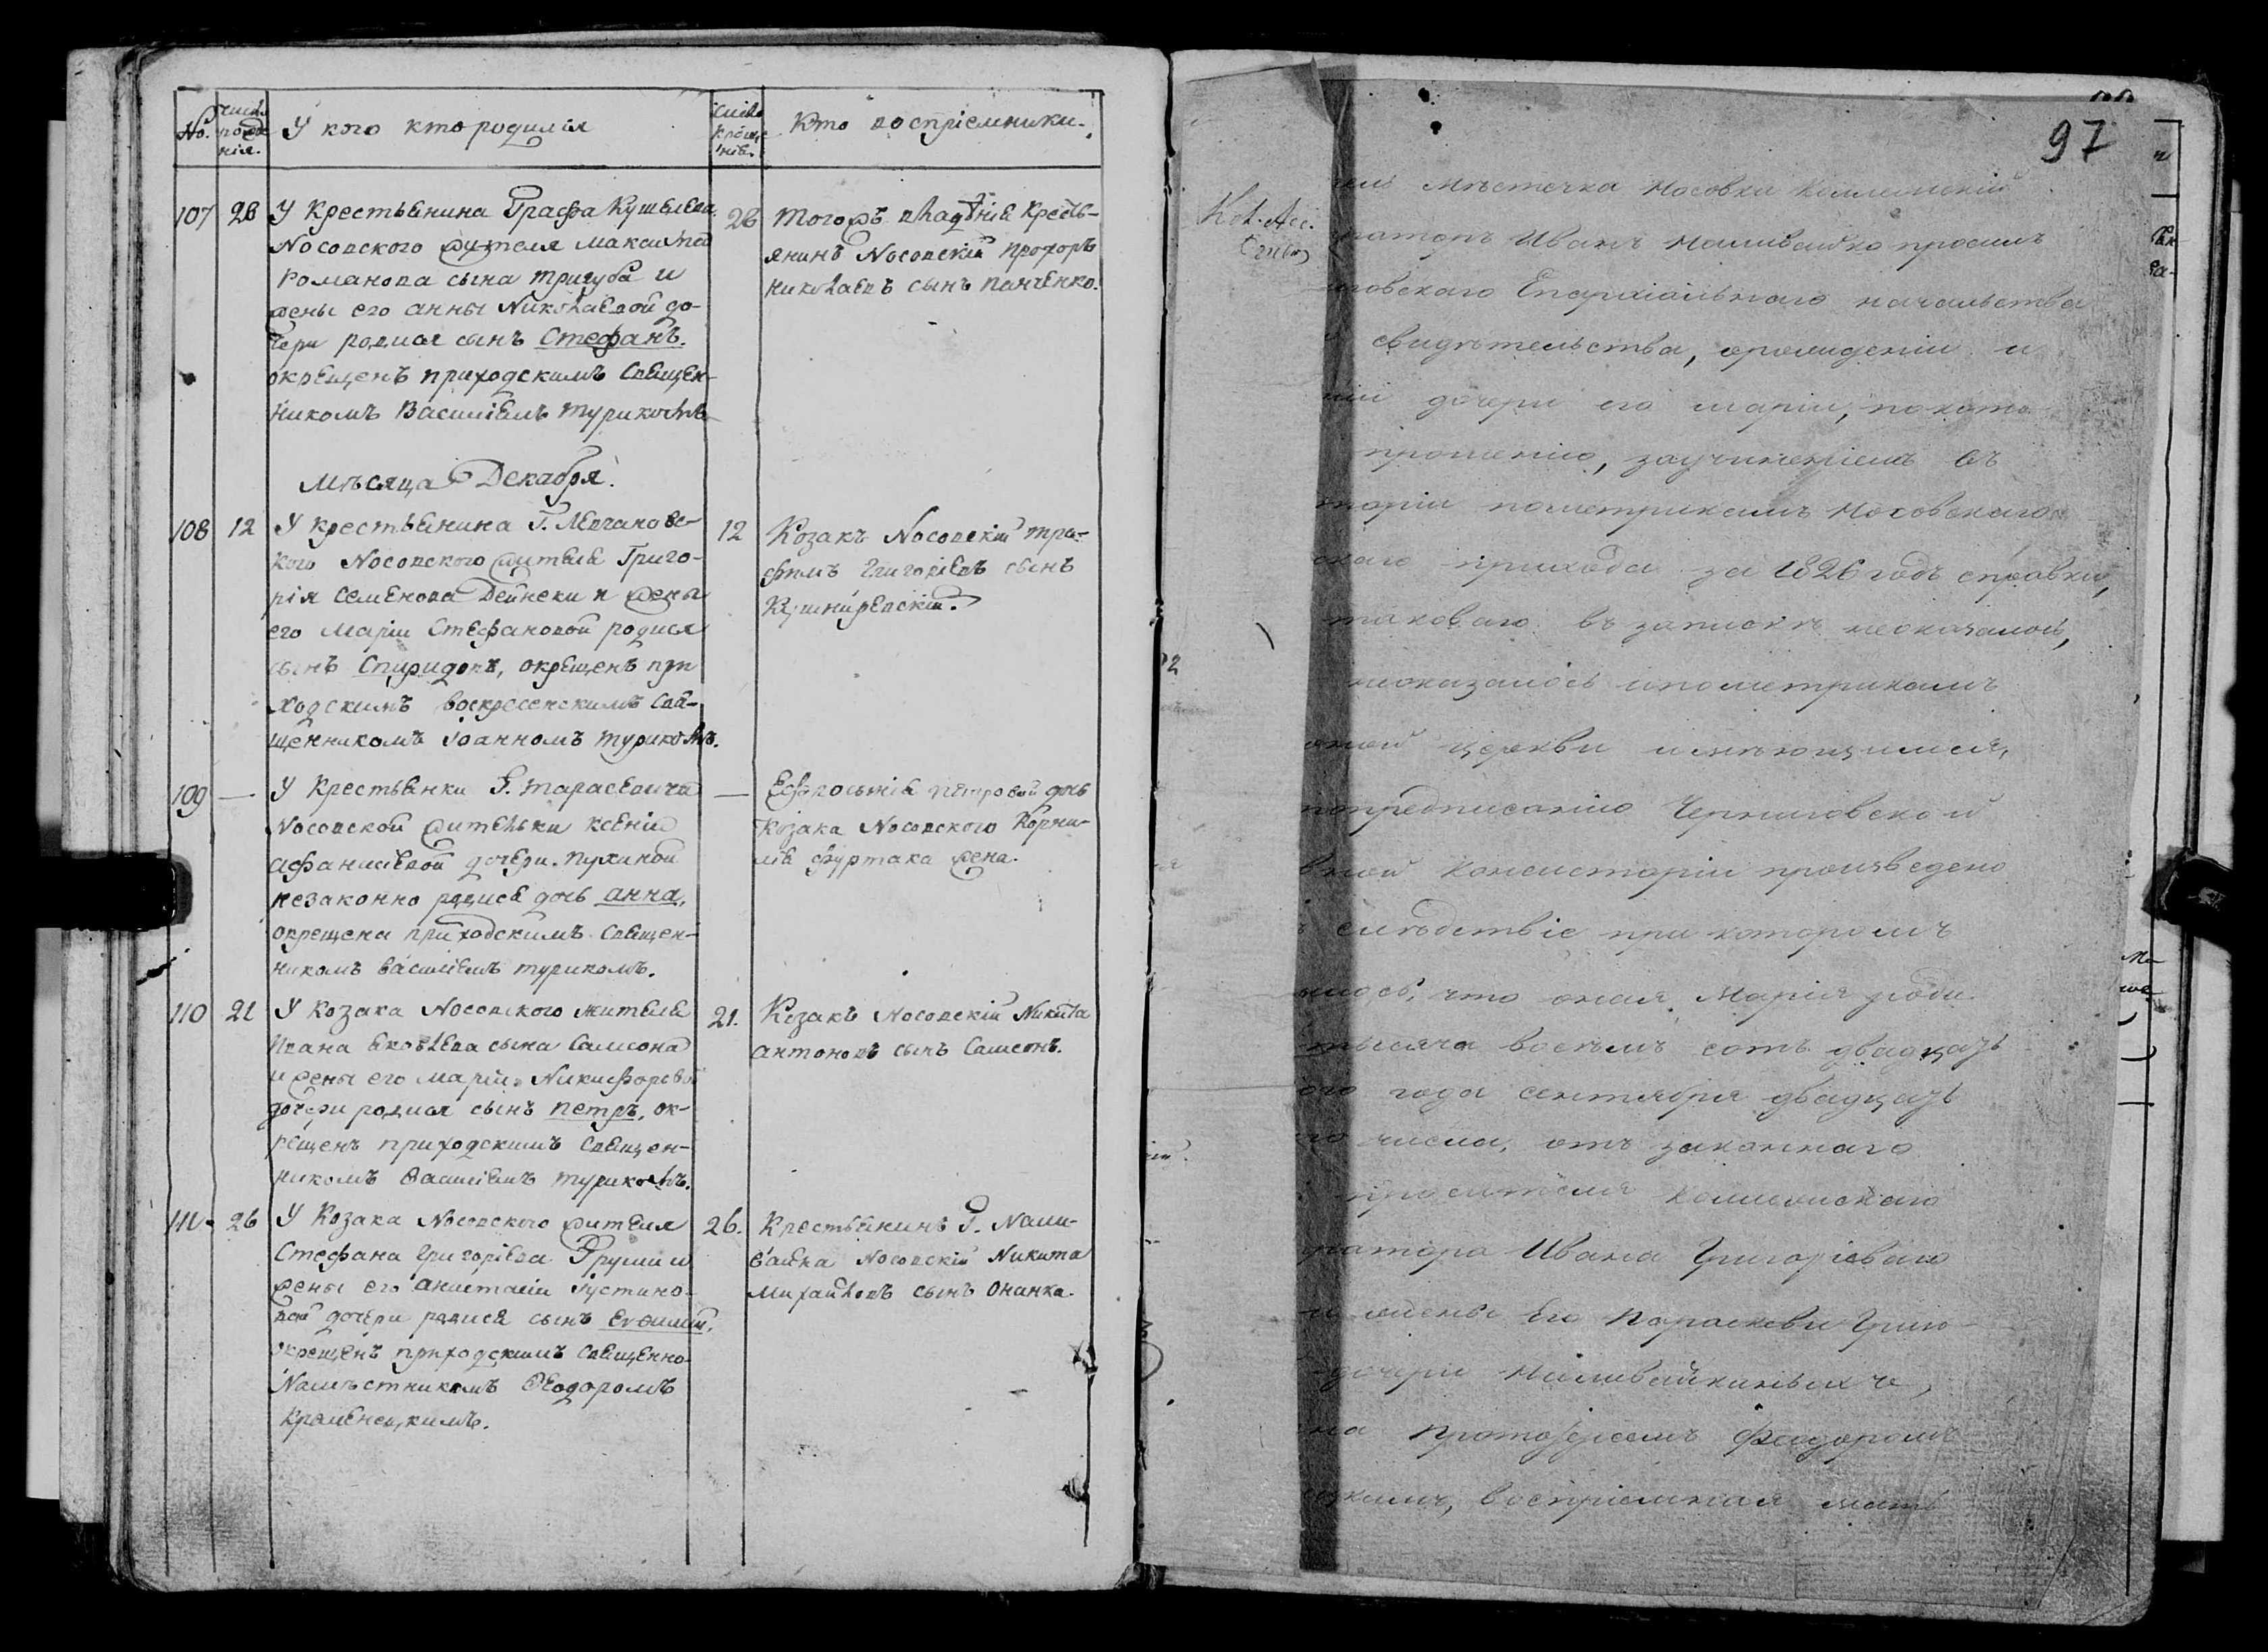 No.
Число рожденія.
У кого кто родился
Число крещенія.
Кто воспріемники.
107 28 У Крестьянина Графа Кушелева
Носовского жителя Максима
Романова сына Тригуба и
жены его Анны Николаевой до-
чери родися сынъ Стефанъ.
окрещенъ приходскимъ Священ-
никомъ Василіемъ Турикомъ
28 Тогожъ владѣнія Кресть-
янинъ Носовскій Прохоръ
Николаевъ сынъ Панченко.
Мѣсяца Декабря.
108 12 У крестьянина Г.
кого Носовского жителя Григо-
рія Семенова Дейнеки и жены
его Маріи Стефановой родися
сынъ Спиридонъ, окрещенъ при
ходскимъ воскресенскимъ Свя-
щенникомъ Іоанномъ Турикомъ.
12 Козакъ Носовскій Тро-
фимъ Григоріевъ сынъ
Кушнѣревскій.
109 — У Крестьянки Г. Тарасевича
Носовской жительки Ксеніи
Афанасіевой дочери Пухиной
незаконно родися дочь Анна,
окрещена приходскимъ Священ-
никомъ Василіемъ Турикомъ.
— Ефросинія Петровой дочь
Козака Носовского Корни-
лія Фуртака жена.
110 21 У Козака Носовского жителя
Ивана Яковлева сына Самсона
и жены его Маріи Никифоровой
дочери родися сынъ Петръ, ок-
рещенъ приходскимъ Священ-
никомъ Василіемъ Турикомъ.
21. Козакъ Носовскій Никита
Антоновъ сынъ Самсонъ.
111 26 У Козака Носовского жителя
Стефана Григоріева Груши и
жены его Анастасіи Іустино-
вой дочери родися сынъ Евѳимій,
окрещенъ приходскимъ Священно-
Намѣстникомъ Ѳеодоромъ
Кременецкимъ.
26. Крестьянинъ Г. Нали-
вайка Носовскій Никита
Михайловъ сынъ Онанка.
97
Кол. Асс.
мѣстечка Носовки Коллежскій
Иванъ Наливайко просилъ
говскаго Епархіальнаго начальства
свидѣтельства, орождении и
ніи дочери его Маріи, покото
прошенію, заучиненіемъ въ
торіи пометрикамъ Носовскаго
скаго прихода за 1826 годъ справки,
таковаго въ запискѣ неоказалось,
неоказалось и пометрикамъ
оной церкви имѣющимся,
попредписанію Черниговской
вной Консисторіи произведено
слѣдствіе при которомъ
алось, что оная Марія роди
тысяча восемь сотъ двадцать
ого года сентября двадцать
го числа, отъ законнаго
просителя Коллежскаго
ратора Ивана Григоріева
и жены Его Параскевы Григо
дочери Наливайкиныхъ,
на Протоіереемъ Феодоромъ
цкимъ, воспріемная мать